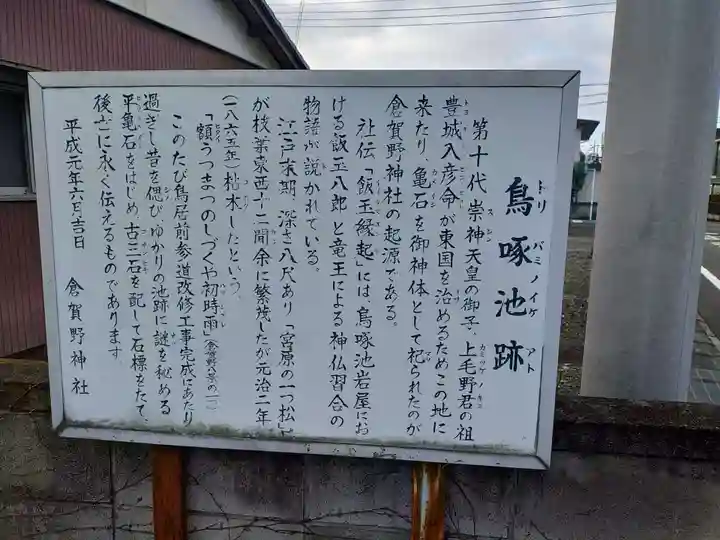 鳥啄池跡
トリバミノイケアト
第十代崇神天皇の御子、上毛野君の祖
豊城入彦命が東国を治めるためこの地に
来たり、亀石を御神体として祀られたのが
倉賀野神社の起源である。
社伝「飯玉縁起」には、鳥啄池岩屋にお
ける飯玉八郎と竜王による神仏習合の
物語が説かれている。
江戸末期、深さ八尺あり「宮原の一つ松」
が枝葉東西十二間余に繁茂したが元治二年
(一八六五年)枯木したという。
「額うつまつのしづくや初時雨」(倉賀野八景の一)
このたび鳥居前参道改修工事完成にあたり
過ぎし昔を偲び、ゆかりの池跡に謎を秘める
平亀石をはじめ、古三石を配して石標をたて、
後世に永く伝えるものであります。
平成元年六月吉日　倉賀野神社